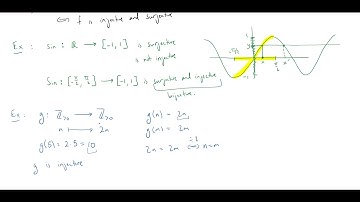 ⟺ f is injective and surjective
Ex: sin: ℝ → [-1, 1] is surjective
is not injective
sin: [-π/2, π/2] → [-1, 1] is surjective and injective
bijective.
Ex: g: ℤ>0 → ℤ>0
n ↦ 2n
g(5) = 2·5 = 10
g is injective
g(n) = 2n
g(m) = 2m
2n = 2m ⟺ n=m